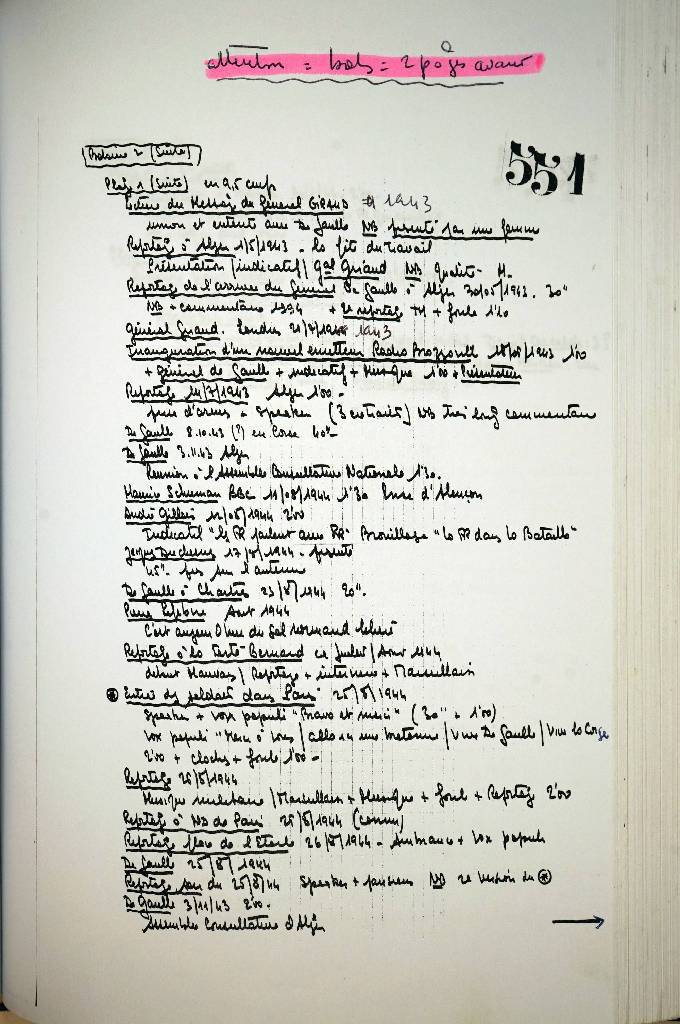 attention = = 2 pages avant
551
Bobine 2 (Suite)
Plage 1 (Suite) en 9,5 cm/s
Lecture du Message du Général GIRAUD 1943
union et entente avec De Gaulle NB présenté par une femme
Reportage à Alger 1/5/1943 - la fête du travail
Présentation / indicatif / Gal Giraud NB Qualité - M.
Reportage de l'arrivée du Général De Gaulle à Alger 30/05/1943. 30"
NB + commentaire 1994 + 2e reportage TM + foule 1'10
Général Giraud. Londres 21/7/1943
Inauguration d'un nouvel émetteur Radio Brazzaville 18/06/1943 1'00
+ général de Gaulle + indicatif + Musique 1'00 + Présentation
Reportage 14/7/1943 Alger 1'00 -
prise d'armes - Speaker (3 extraits) NB Très long commentaire
De Gaulle 8.10.43 (?) en Corse 40"-
De Gaulle 3.11.43 Alger
Réunion à l'Assemblée Consultative Nationale 1'30.
Maurice Schuman BBC 11/08/1944 1'30 Prise d'Alençon
André Gillois 12/08/1944 2'00
Indicatif "les FR parlent aux FR" Brouillage "la FR dans la Bataille"
Jacques Duchesne 17/8/1944 - présente
45"- sur l'antenne
De Gaulle à Chartres 23/8/1944 20".
Pierre Lefebvre Aout 1944
C'est aujourd'hui du Sol normand libéré
Reportage à la Ferté Bernard en Juillet / Aout 1944
début Mauvais / Reportage + interviews + Marseillaise
⊛ Entrée des soldats dans Paris 25/8/1944
Speaker + vox populi "Bravo et merci" (30" + 1'00)
vox populi "Merci à vous / allo un / Vive De Gaulle / Vive la
2'00 + cloches + foule 1'00 -
Reportage 26/8/1944
Musique militaire / Marseillaise + Musique + foule + Reportage 2'00
Reportage à ND de Paris 26/8/1944 (connu)
Reportage place de l'Etoile 26/8/1944 - Ambiance + Vox populi
De Gaulle 25/8/1944
Reportage du 25/8/44 Speaker + parisiens NB 2e version de ⊛
De Gaulle 3/11/43 2'00 -
Assemblée Consultative d'Alger →